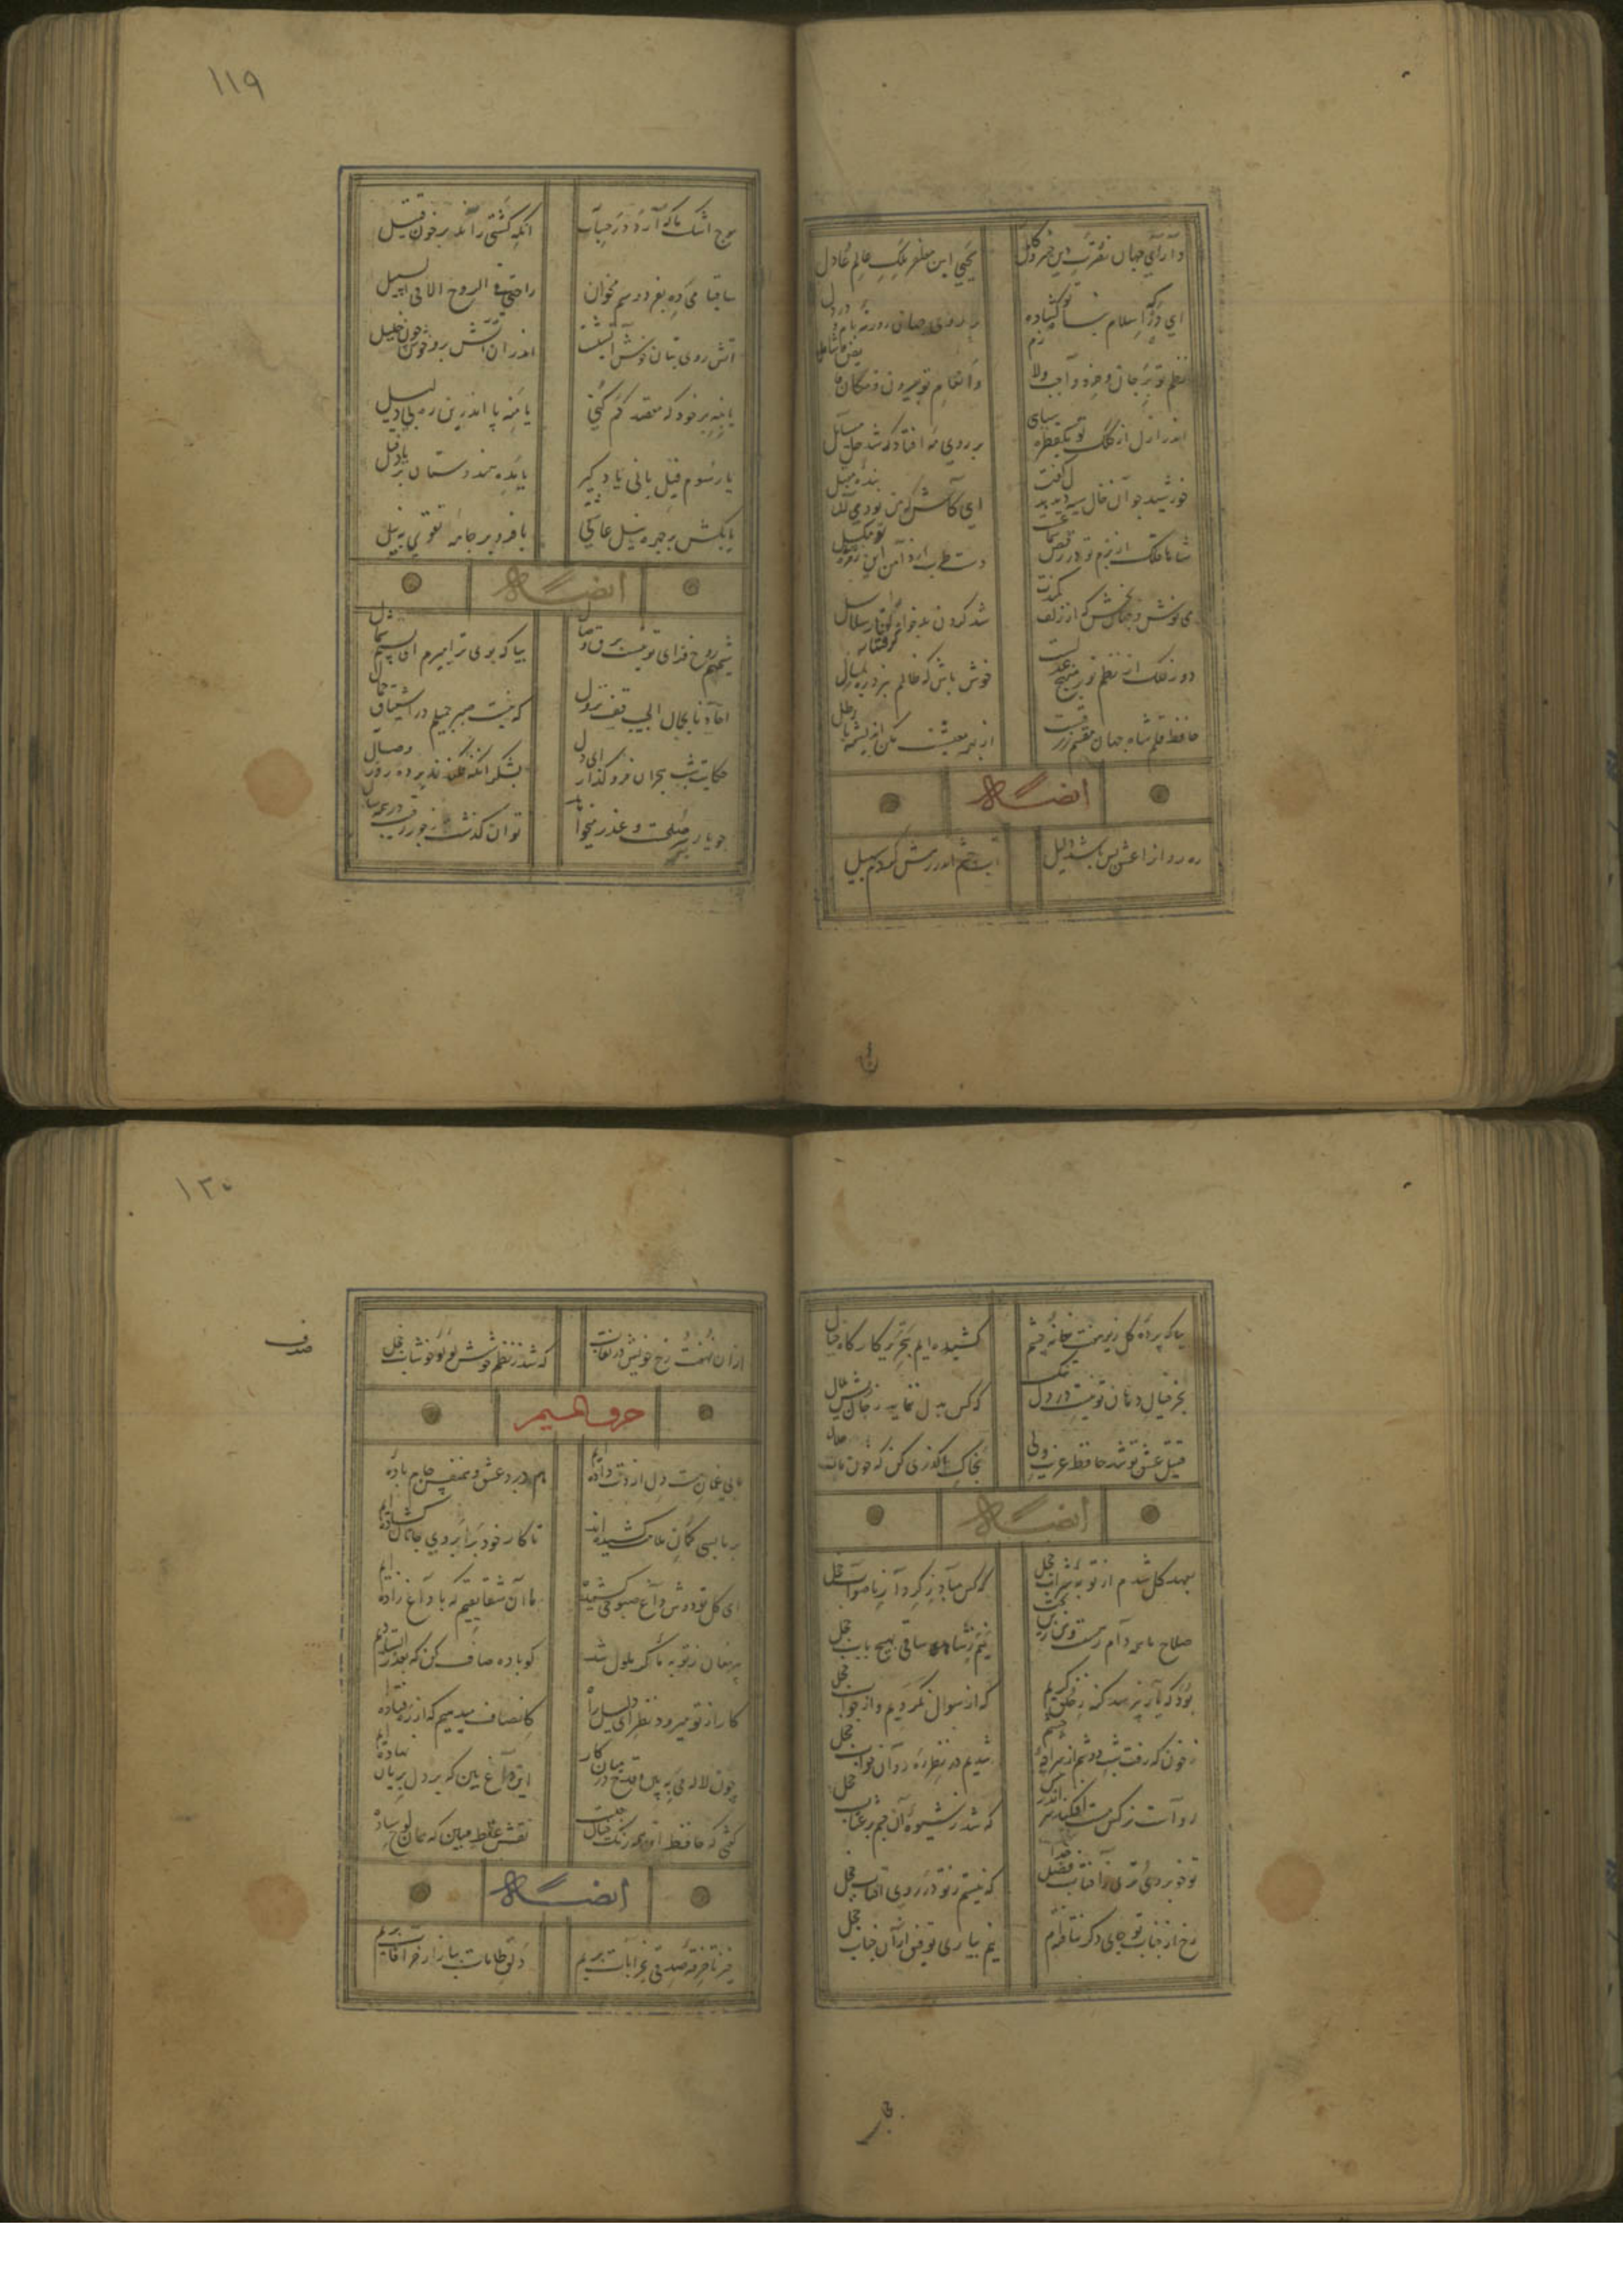 دارای جهان نصرت دین خسرو کامل
یحیی ابن مظفر ملک عالم عادل
ای درگه اسلام پناه تو گشاده
بر روی جهان روزنه جان و در دل
تعظیم تو بر جان و خرد واجب و لازم
و انعام تو بر کون و مکان فایض و شامل
اندر ازل از کلک تو یکقطره سیاهی
بر روی مه افتاد که شد حل مسایل
خورشید چو آن خال سیه دید بدل گفت
ای کاش که من بودمی آن بنده مقبل
شاها فلک از بزم تو در رقص و سماعست
دست طرب از دامن این زمزمه مگسل
می نوش و جهان بخش که از زلف کمندت
شد گردن بدخواه گرفتار سلاسل
دور فلک از نظم تو بر منهج عدلست
خوش باش که ظالم نبرد ره بمنزل
حافظ قلم شاه جهان مقسم رزقست
از بهر معیشت مکن اندیشه باطل
ایضاً له
ره روانرا عشق بس باشد دلیل
آب چشم اندر رهش کردم سبیل
۱۱۹
موج اشک ما کی آرد در حساب
آنکه کشتی راند بر خون قتیل
ساقیا می ده بفردوسم مخوان
راحتی فی الروح الا فی السبیل
آتش روی بتان خوش آتشیست
اندر آن آتش برو خوش چون خلیل
یا بنه بر خود که مقصد گم کنی
یا منه پا اندرین ره بی دلیل
یا رسوم فیل بانی یاد گیر
یا مده هندوستان بر یاد فیل
یا بکش بر چهره نیل عاشقی
یا فرو بر جامه تقوی به نیل
ایضاً له
شمیم روح فزای تو نیست برق وصال
بیا که بوی ترا میرم ای نسیم شمال
احادیا بجمال الحبیب قف و انزل
که نیست صبر جمیلم در اشتیاق جمال
حکایت شب هجران فرو گذار ای دل
بشکر آنکه برافکند پرده روز وصال
چو یار بر سر صلحست و عذر میخواهد
توان گذشت ز جور رقیب در همه حال
بیا که پرده گلریز هفت خانه چشم
کشیده ایم بتحریر کارگاه خیال
بجز خیال دهان تو نیست در دل تنگ
که کس مبدل نماید ز جان
قتیل عشق تو شد حافظ غریب ولی
بخاک ما گذری کن که خون مات حلال
ایضاً له
بعهد گل شدم از توبه شراب خجل
که کس مباد ز کردار ناصواب خجل
صلاح ما همه دام رهست و من زین بحث
نیم ز شاهد و ساقی بهیچ باب خجل
بود که یار نپرسد گنه ز خلق کریم
که از سوال ملولیم و از جواب خجل
ز خون که رفت شب دوش از سراچه چشم
شدیم در نظر ره روان خواب خجل
رواست نرگس مست ار فکند سر در پیش
که شد ز شیوه آن چشم پر عتاب خجل
تو خوبروی تری ز آفتاب و شکر خدا
که نیستم ز تو در روی آفتاب خجل
رخ از جناب تو جای دگر نتافته‌ام
نیم بیاری توفیق از آن جناب خجل
۱۲۰
از آن نهفت رخ خویش در نقاب صدف
که شد ز نظم خوشش لؤلؤ خوشاب خجل
حرف المیم
ما بی غمان مست دل از دست داده ایم
هم درد عشق و هم نفس جام باده ایم
بر ما بسی کمان ملامت کشیده‌اند
تا کار خود ز ابروی جانان گشاده ایم
ای گل تو دوش داغ صبوحی کشیده
ما آن شقایقیم که با داغ زاده ایم
پیر مغان ز توبه ما گر ملول شد
گو باده صاف کن که بعذر ایستاده ایم
کار از تو میرود نظری ای دلیل راه
کانصاف میدهیم که از ره فتاده ایم
چون لاله می مبین و قدح در میان کار
این داغ بین که بر دل بریان نهاده ایم
گفتی که حافظ این همه رنگ خیال چیست
نقش غلط مبین که همان لوح ساده ایم
ایضاً له
خیز تا خرقه صوفی بخرابات بریم
دلق طامات ببازار خرافات بریم